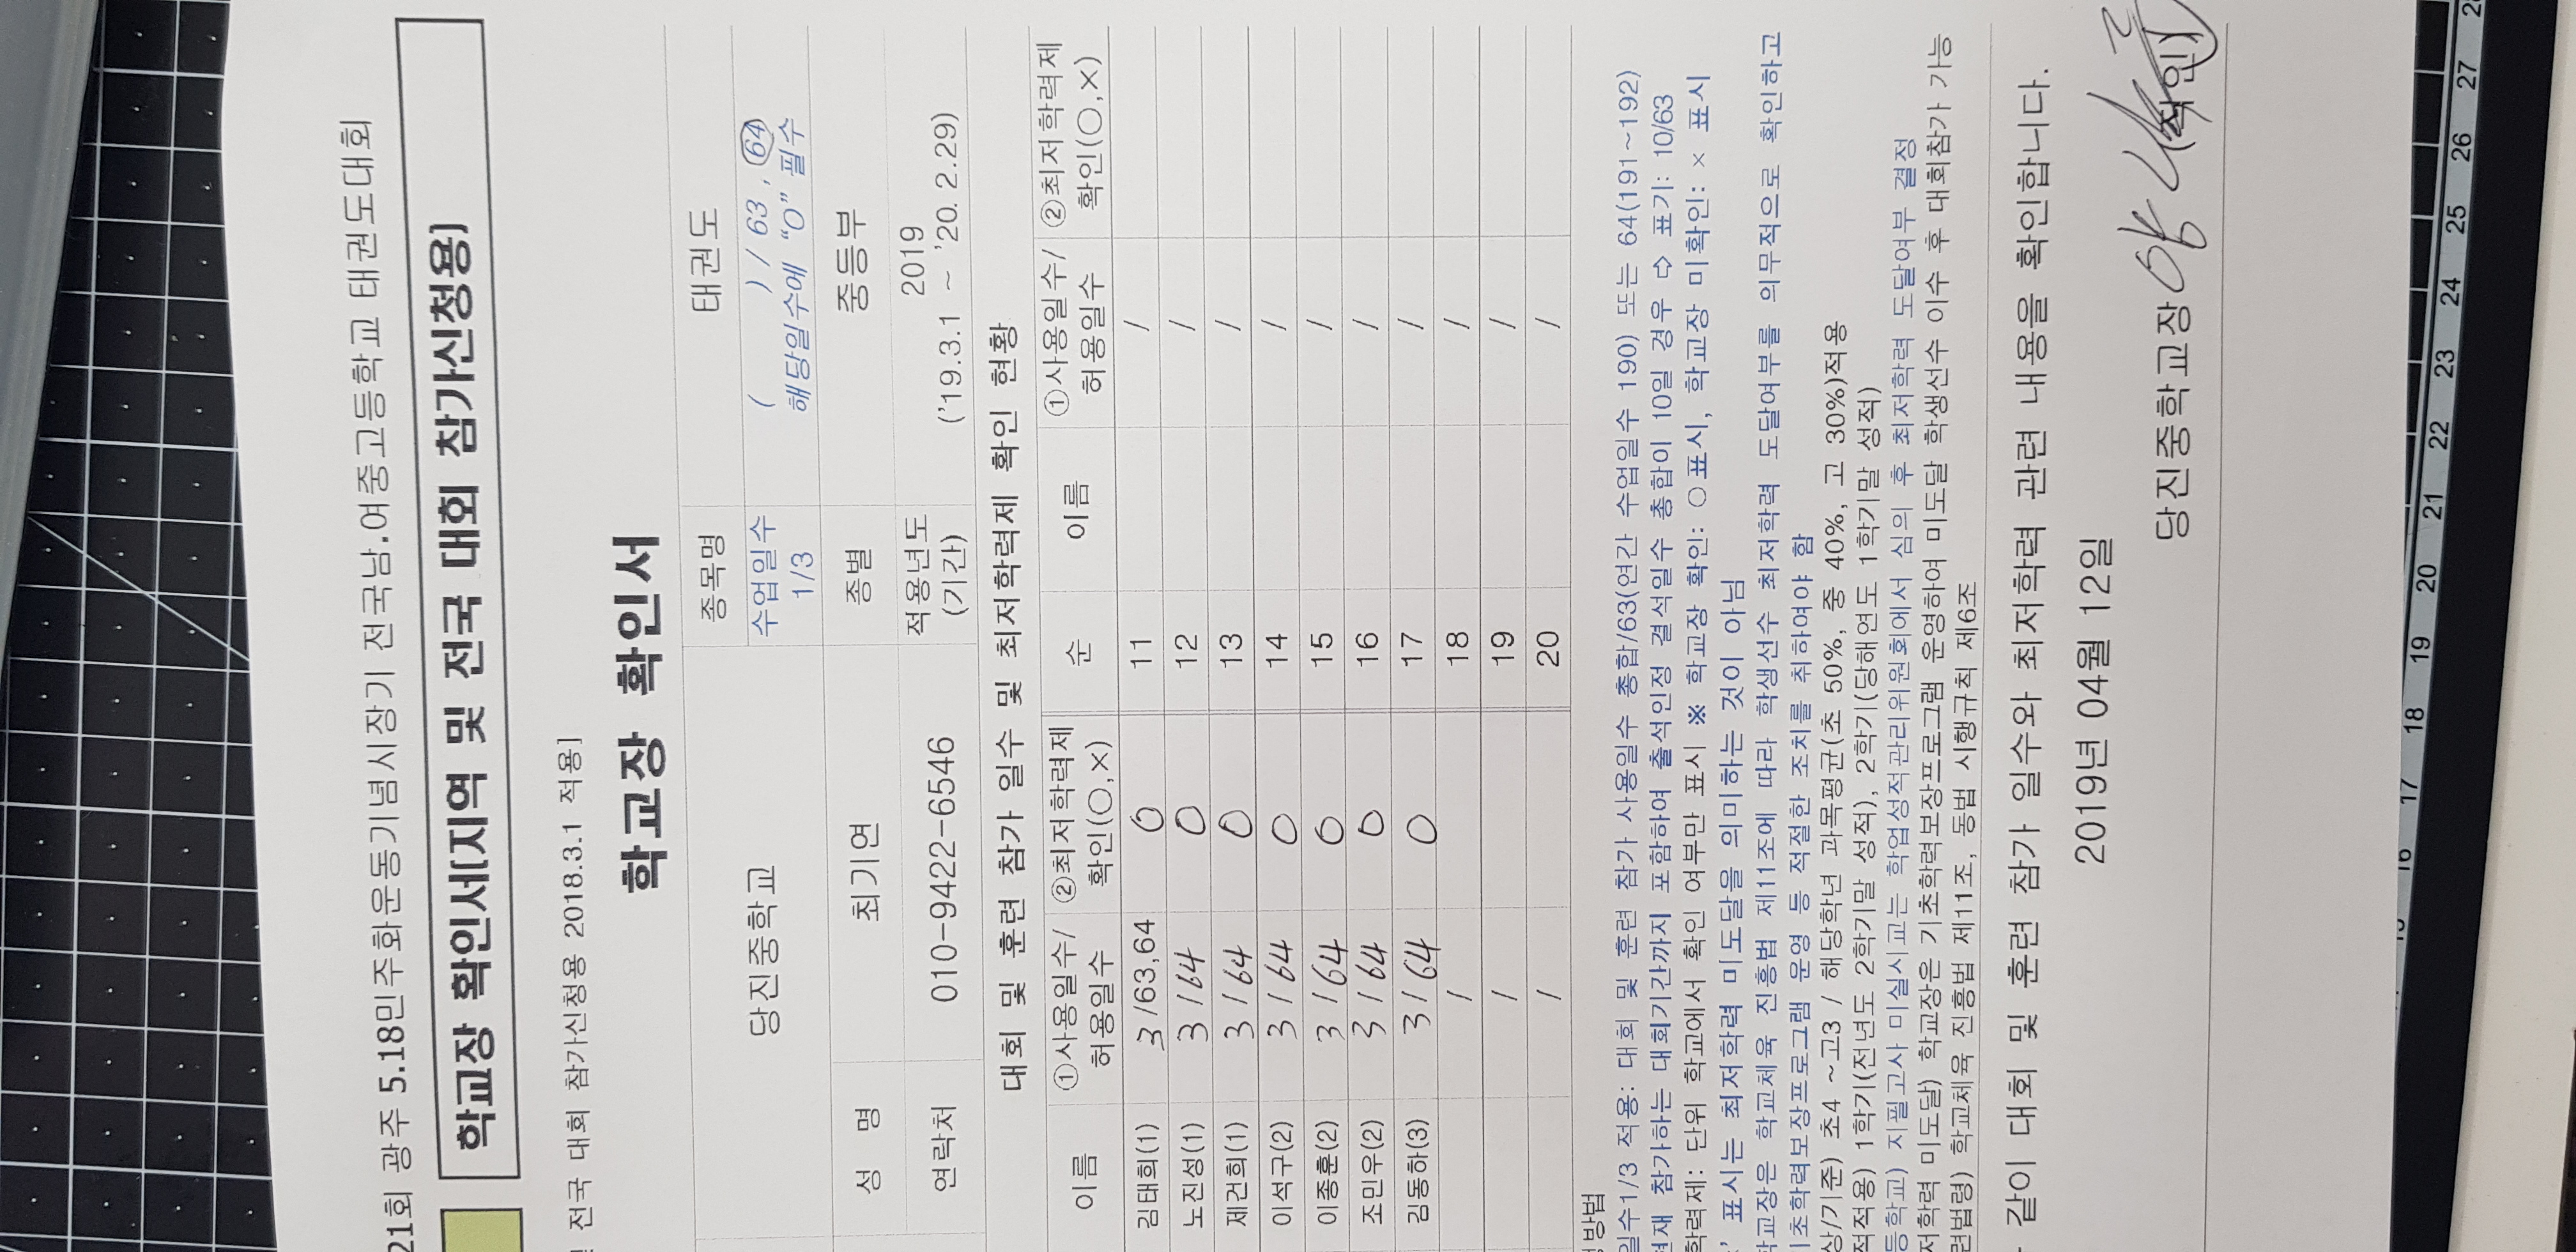 21회 광주 5.18민주화운동기념시장기 전국남.여중고등학교 태권도대회
학교장 확인서[지역 및 전국 대회 참가신청용]
전국 대회 참가신청용 2018.3.1 적용]
학교장 확인서
당진중학교 종목명 태권도
수업일수 1/3 ( ) / 63 , 64
해당일수에 "O" 필수
성 명 최기연 종별 중등부
연락처 010-9422-6546 적용년도 (기간) 2019
('19.3.1 ~ '20. 2.29)
대회 및 훈련 참가 일수 및 최저학력제 확인 현황
이름 ①사용일수/허용일수 ②최저학력제 확인(○,×) 순 이름 ①사용일수/허용일수 ②최저학력제 확인(○,×)
김태희(1) 3 /63,64 O 11 /
노진성(1) 3 / 64 O 12 /
제건희(1) 3 / 64 O 13 /
이석구(2) 3 / 64 O 14 /
이종훈(2) 3 / 64 O 15 /
조민우(2) 3 / 64 O 16 /
김동하(3) 3 / 64 O 17 /
/ 18 /
/ 19 /
/ 20 /
방법
일수1/3 적용: 대회 및 훈련 참가 사용일수 총합/63(연간 수업일수 190) 또는 64(191~192)
현재 참가하는 대회기간까지 포함하여 출석인정 결석일수 총합이 10일 경우 ⇨ 표기: 10/63
학력제: 단위 학교에서 확인 여부만 표시 ※ 학교장 확인: ○표시, 학교장 미확인: × 표시
' 표시는 최저학력 미도달을 의미하는 것이 아님
학교장은 학교체육 진흥법 제11조에 따라 학생선수 최저학력 도달여부를 의무적으로 확인하고
기초학력보장프로그램 운영 등 적절한 조치를 취하여야 함
상/기준) 초4 ~고3 / 해당학년 과목평균(초 50%, 중 40%, 고 30%)적용
적적용) 1학기(전년도 2학기말 성적), 2학기(당해연도 1학기말 성적)
등학교) 지필고사 미실시교는 학업성적관리위원회에서 심의 후 최저학력 도달여부 결정
저학력 미도달) 학교장은 기초학력보장프로그램 운영하여 미도달 학생선수 이수 후 대회참가 가능
련법령) 학교체육 진흥법 제11조, 동법 시행규칙 제6조
같이 대회 및 훈련 참가 일수와 최저학력 관련 내용을 확인합니다.
2019년 04월 12일
당진중학교장 (직인)
16 17 18 19 20 21 22 23 24 25 26 27 28